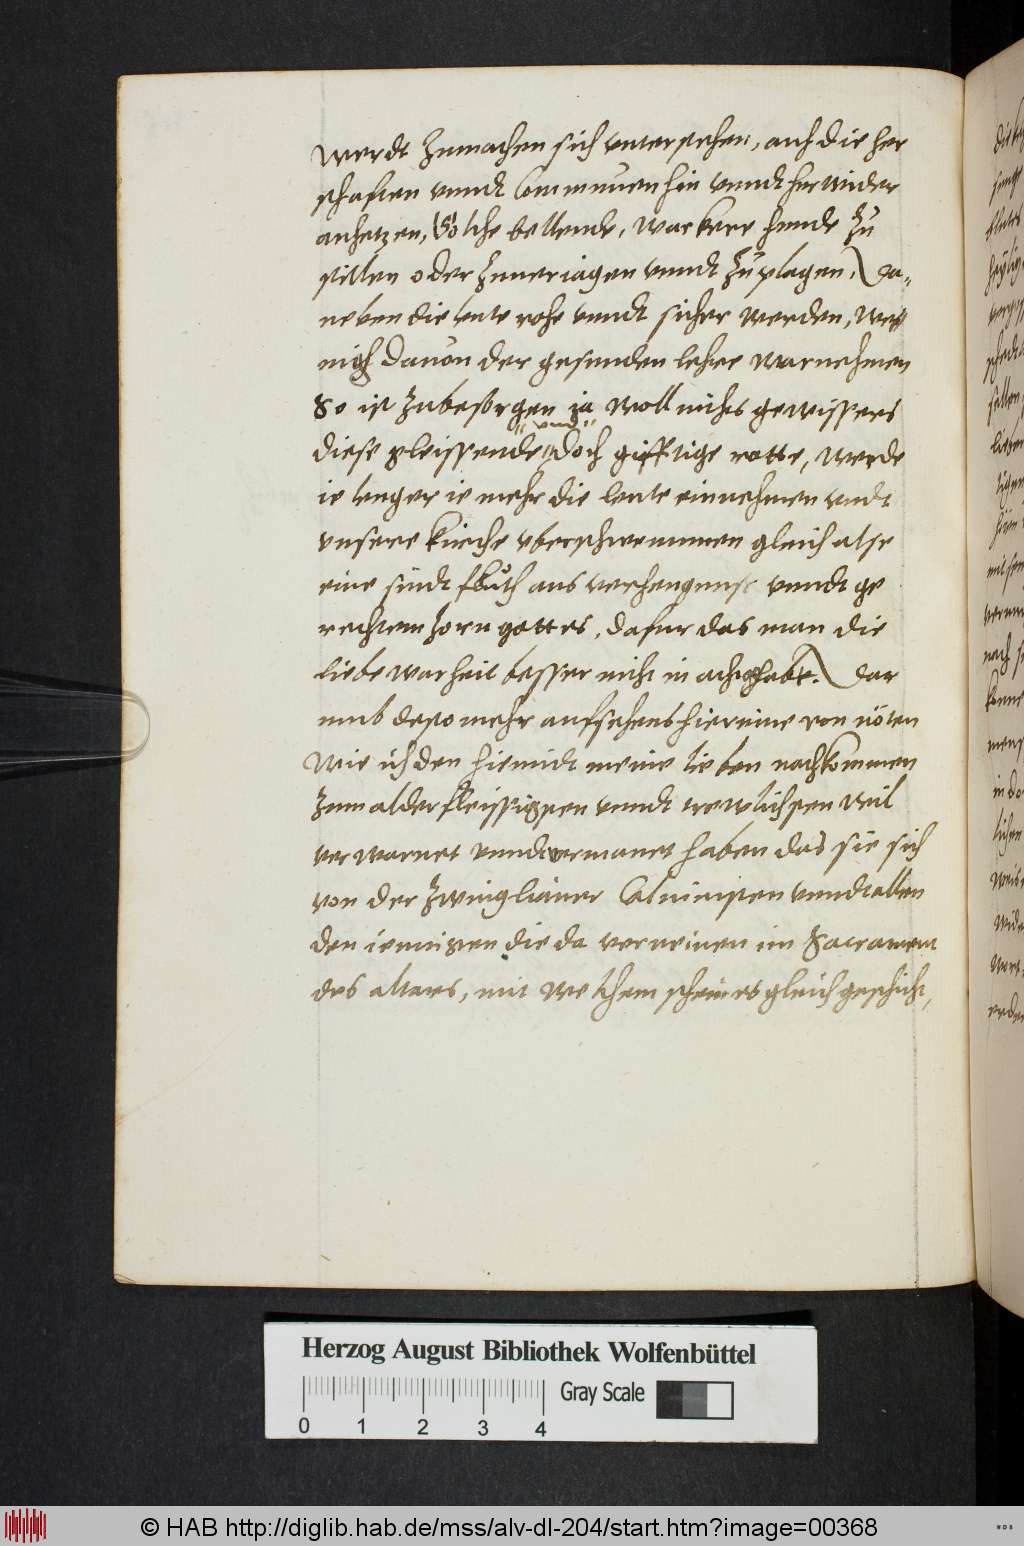 werdt zumachen sich vnterstehen, auch die her
schaften vnndt Communen hin vnndt herwider
anhetzen, Solche bellende, wackere hunde zu
stillen oder zuueriagen vnndt zu plagen, Da-
neben die leute rohe vnndt sicher werden, we
nigh dauon der gesunden lehre warnehmen
So ist zubesorgen ja woll nichts gewissers
diese gleissende vnd doch gifftige rotte, werde
ie lenger ie mehr die leute einnehmen vndt
vnsere kirche vberschwemmen gleich alse
eine sündt fluth aus verhengnuse vnndt ge
rechtem zorn gottes, dafur das man die
liebe warheit besser nicht in acht gehabt. Dar
umb desto mehr aufsehens hierinne von nöten
Wie ich den hiemidt meine lieben nachkommen
zum alderfleissigsten vnndt trewlichsten will
verwarnet vnndt vermanet haben das sie sich
von der Zwinglianer Caluinisten vnndt allen
den iennigen die da verneinen im Sacrament
des altars, mit welchem schein es gleich geschicht,
Herzog August Bibliothek Wolfenbüttel
0 1 2 3 4 Gray Scale
© HAB http://diglib.hab.de/mss/alv-dl-204/start.htm?image=00368